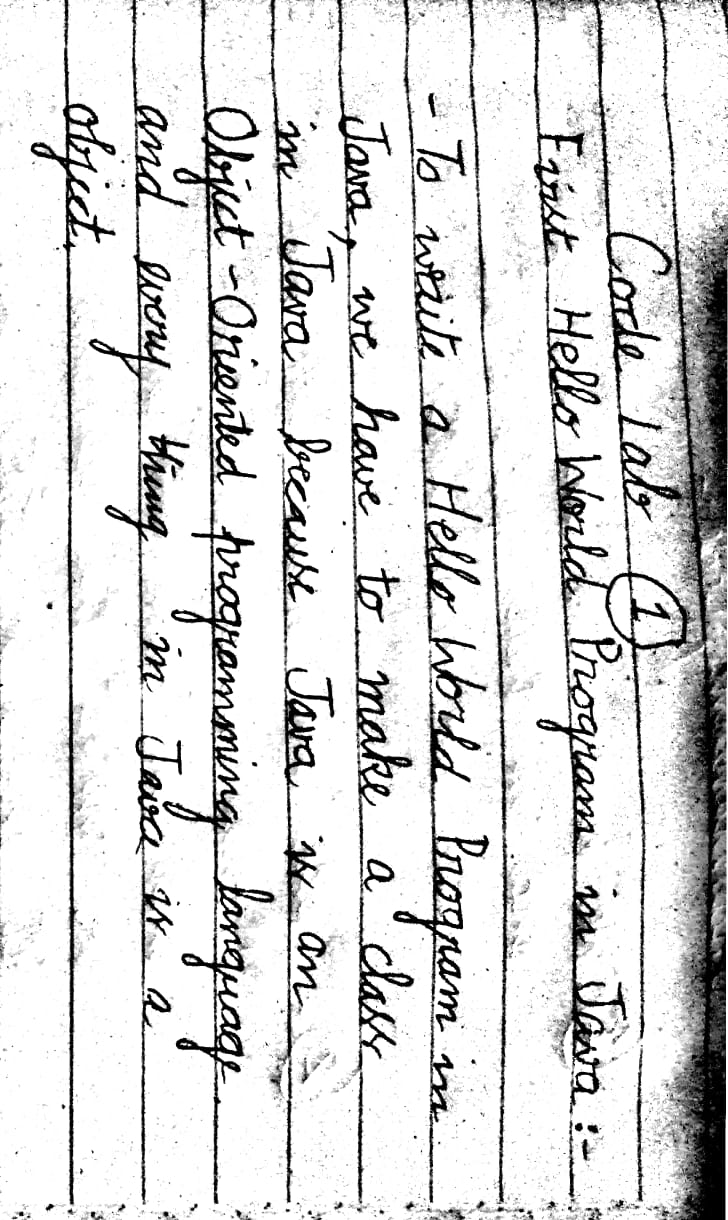 Code lab 1
First Hello World Program in Java :-
- To write a Hello World Program in
Java, we have to make a class
in Java because Java is an
Object-Oriented programming language
and every thing in Java is a
object.